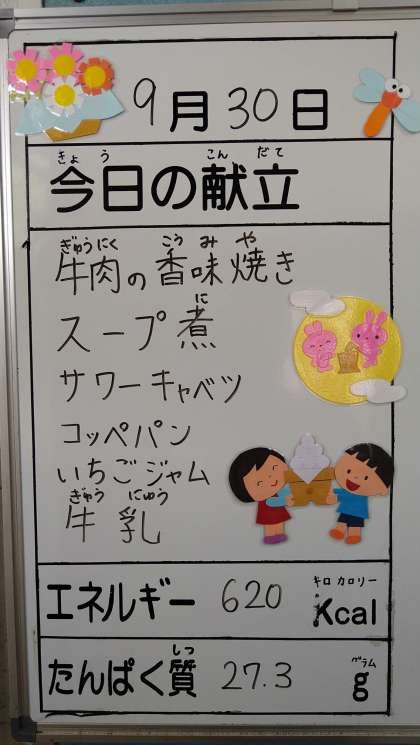 9月30日
きょう こんだて
今日の献立
ぎゅうにく こうみや
牛肉の香味焼き
に
スープ煮
サワーキャベツ
コッペパン
いちごジャム
ぎゅう にゅう
牛乳
キロカロリー
エネルギー 620 Kcal
しつ グラム
たんぱく質 27.3 g